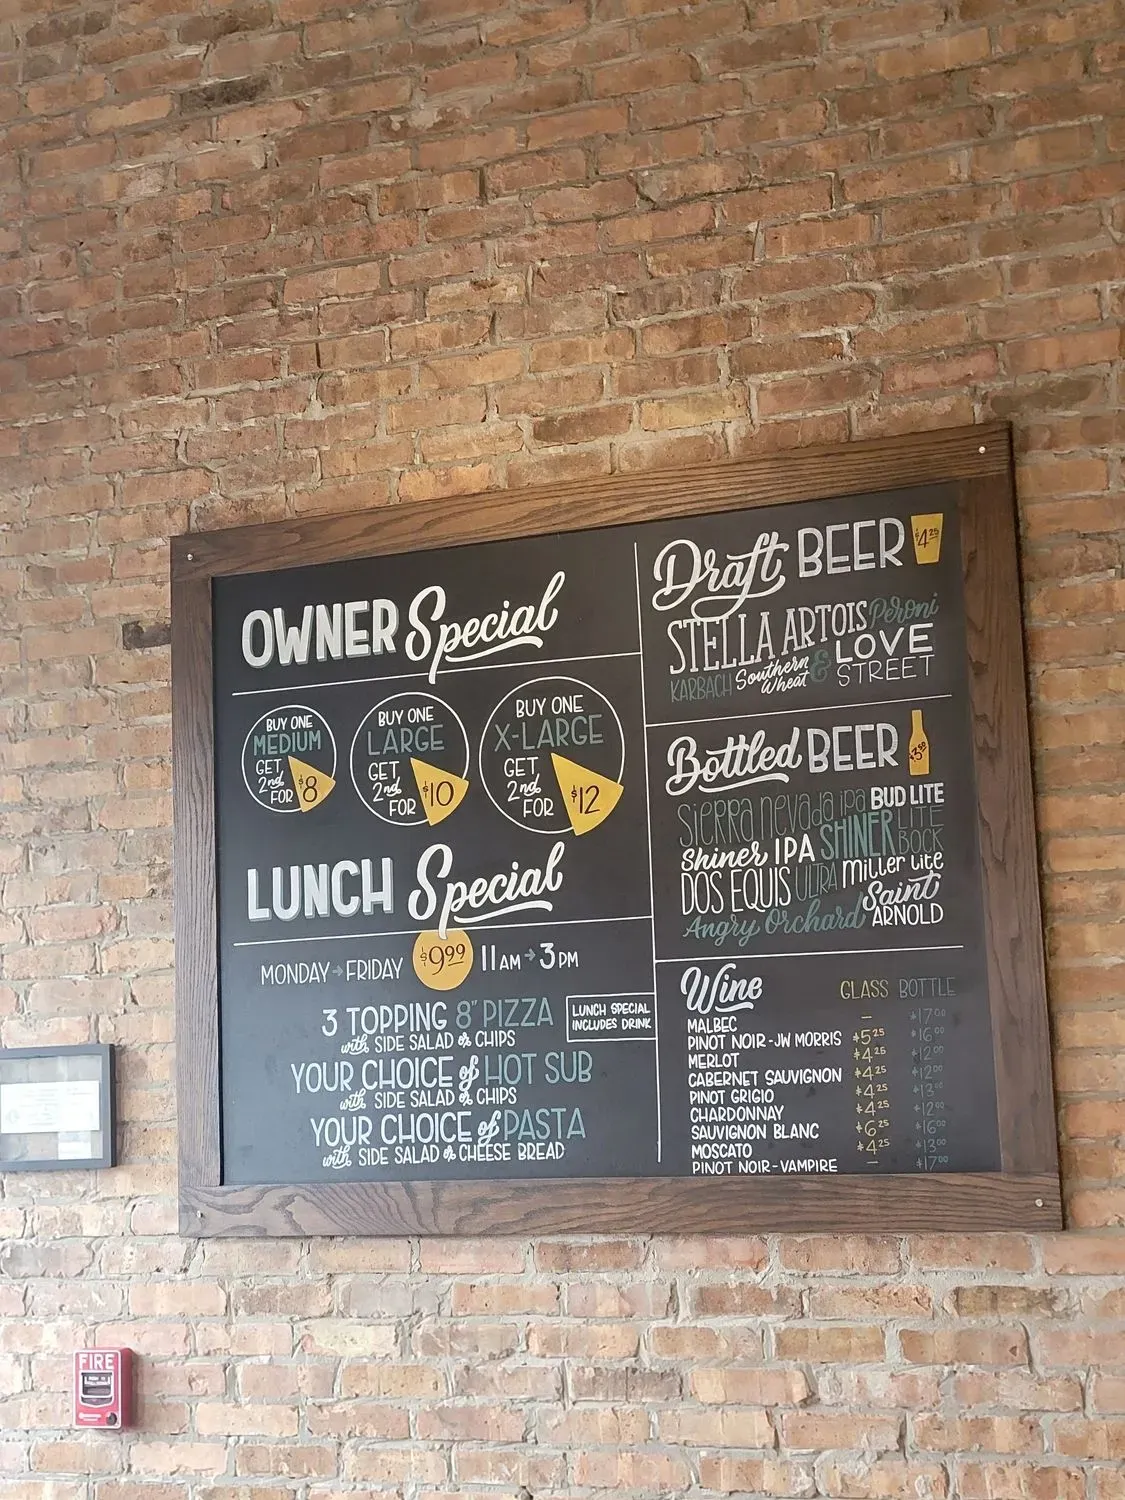 OWNER Special
BUY ONE
MEDIUM
GET
2nd
FOR
$8
BUY ONE
LARGE
GET
2nd
FOR
$10
BUY ONE
X-LARGE
GET
2nd
FOR
$12
LUNCH Special
MONDAY → FRIDAY $9.99 11AM → 3PM
3 TOPPING 8" PIZZA
with SIDE SALAD or CHIPS
LUNCH SPECIAL
INCLUDES DRINK
YOUR CHOICE of HOT SUB
with SIDE SALAD or CHIPS
YOUR CHOICE of PASTA
with SIDE SALAD or CHEESE BREAD
Draft BEER $4.25
STELLA ARTOIS Peroni
KARBACH Southern Wheat & LOVE STREET
Bottled BEER $3.50
Sierra Nevada ipa BUD LITE
Shiner IPA SHINER LITE BOCK
DOS EQUIS ULTRA Miller Lite
Angry Orchard Saint ARNOLD
Wine GLASS BOTTLE
MALBEC – $17.00
PINOT NOIR - JW MORRIS $5.25 $16.00
MERLOT $4.25 $12.00
CABERNET SAUVIGNON $4.25 $12.00
PINOT GRIGIO $4.25
CHARDONNAY $4.25 $12.00
SAUVIGNON BLANC $6.25 $16.00
MOSCATO $4.25 $13.00
PINOT NOIR - VAMPIRE – $17.00
FIRE